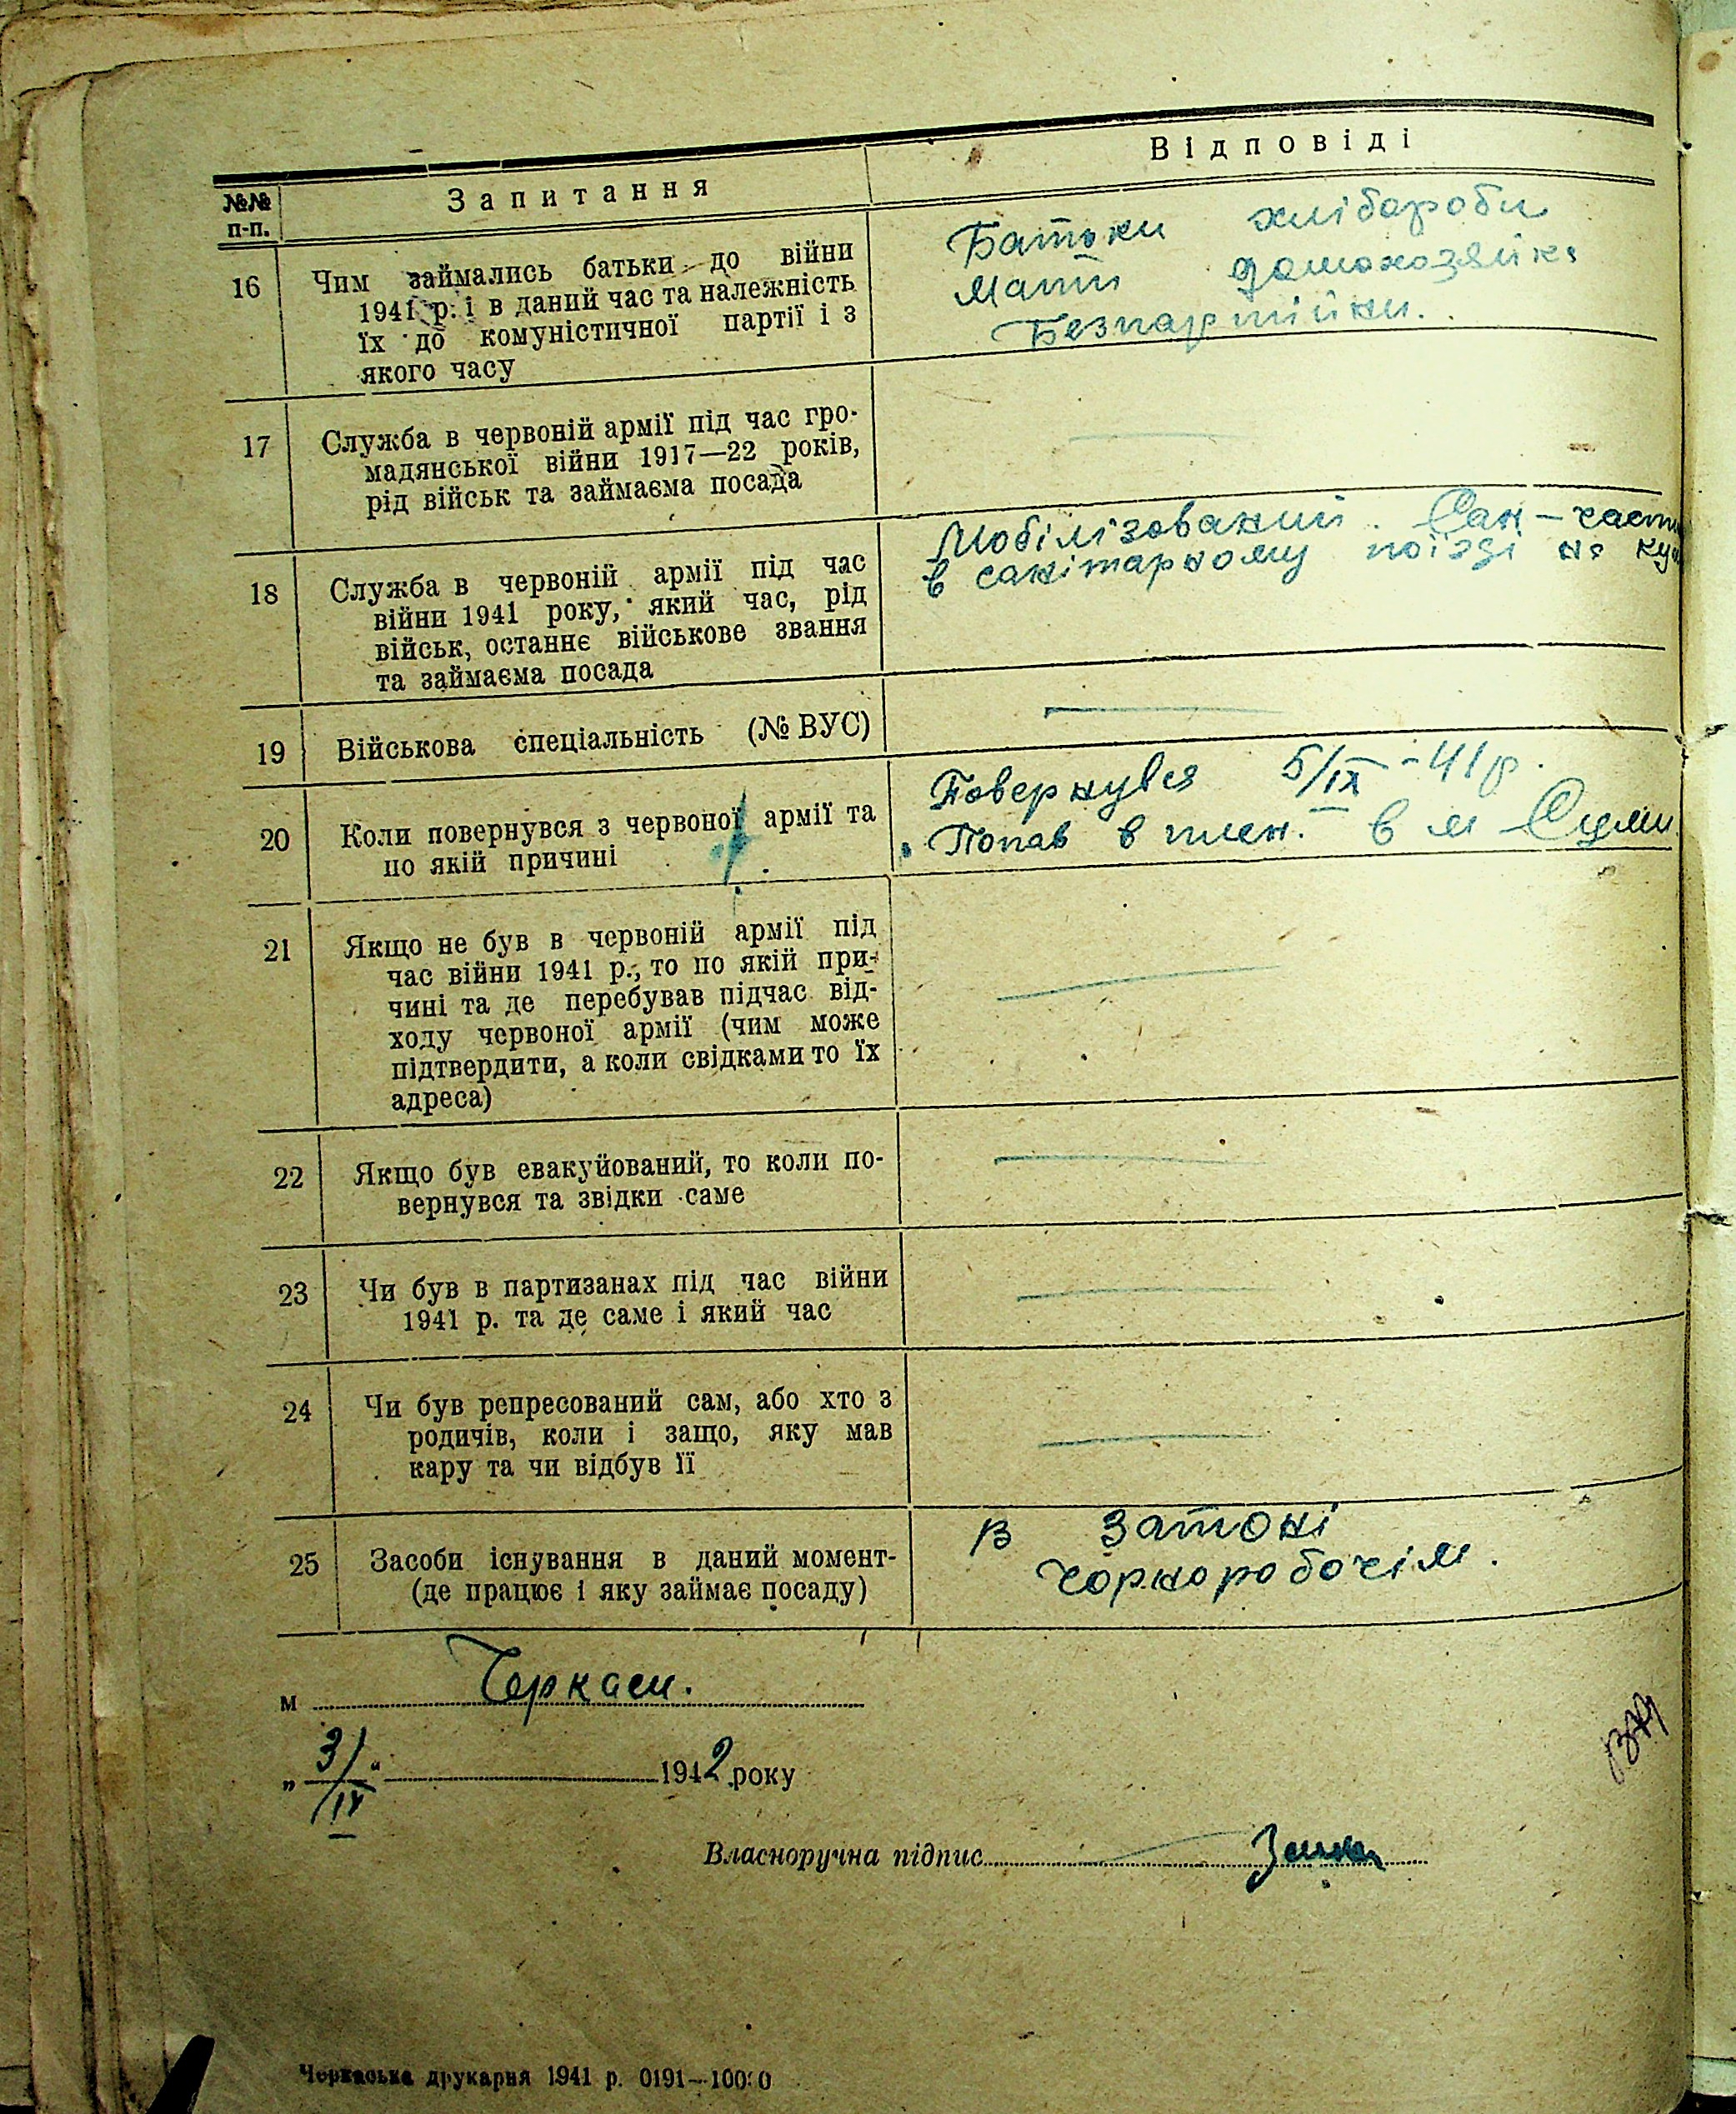 №№ п-п.
Запитання
Відповіді
16
Чим займались батьки до війни
1941 р. і в даний час та належність
їх до комуністичної партії і з
якого часу
Батьки хлібароби
Мати домохозяйка
Безпартійни.
17
Служба в червоній армії під час гро-
мадянської війни 1917—22 років,
рід військ та займаєма посада
18
Служба в червоній армії під час
війни 1941 року, який час, рід
військ, останнє військове звання
та займаєма посада
Мобілізований. Сан-
в санітарному поїзді на
19
Військова спеціальність (№ ВУС)
20
Коли повернувся з червоної армії та
по якій причині
Повернувся 5/IX-41 р.
Попав в плен. в м Суми
21
Якщо не був в червоній армії під
час війни 1941 р., то по якій при-
чині та де перебував підчас від-
ходу червоної армії (чим може
підтвердити, а коли свідками то їх
адреса)
22
Якщо був евакуйований, то коли по-
вернувся та звідки саме
23
Чи був в партизанах під час війни
1941 р. та де саме і який час
24
Чи був репресований сам, або хто з
родичів, коли і защо, яку мав
кару та чи відбув її
25
Засоби існування в даний момент-
(де працює і яку займає посаду)
В затоні
чорноробочім.
м Черкаси.
„3/IX“ 1942 року
Власноручна підпис
Черкаська друкарня 1941 р. 0191—10000